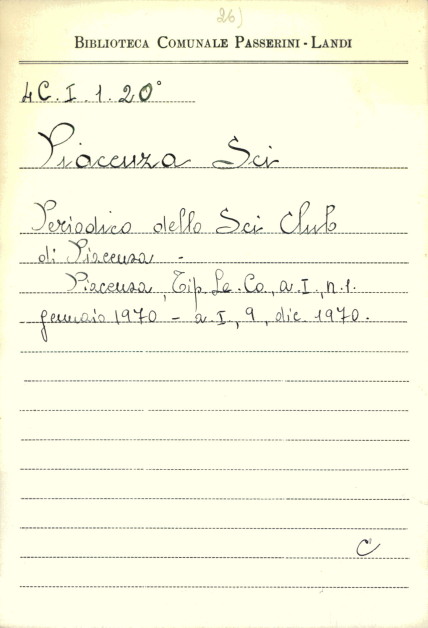 26)
BIBLIOTECA COMUNALE PASSERINI - LANDI
4C. I. 1. 20°
Piacenza Sci
Periodico dello Sci Club
di Piacenza -
Piacenza, Tip. Le. Co, a. I, n. 1.
gennaio 1970 - a. I, 9, dic. 1970.
C